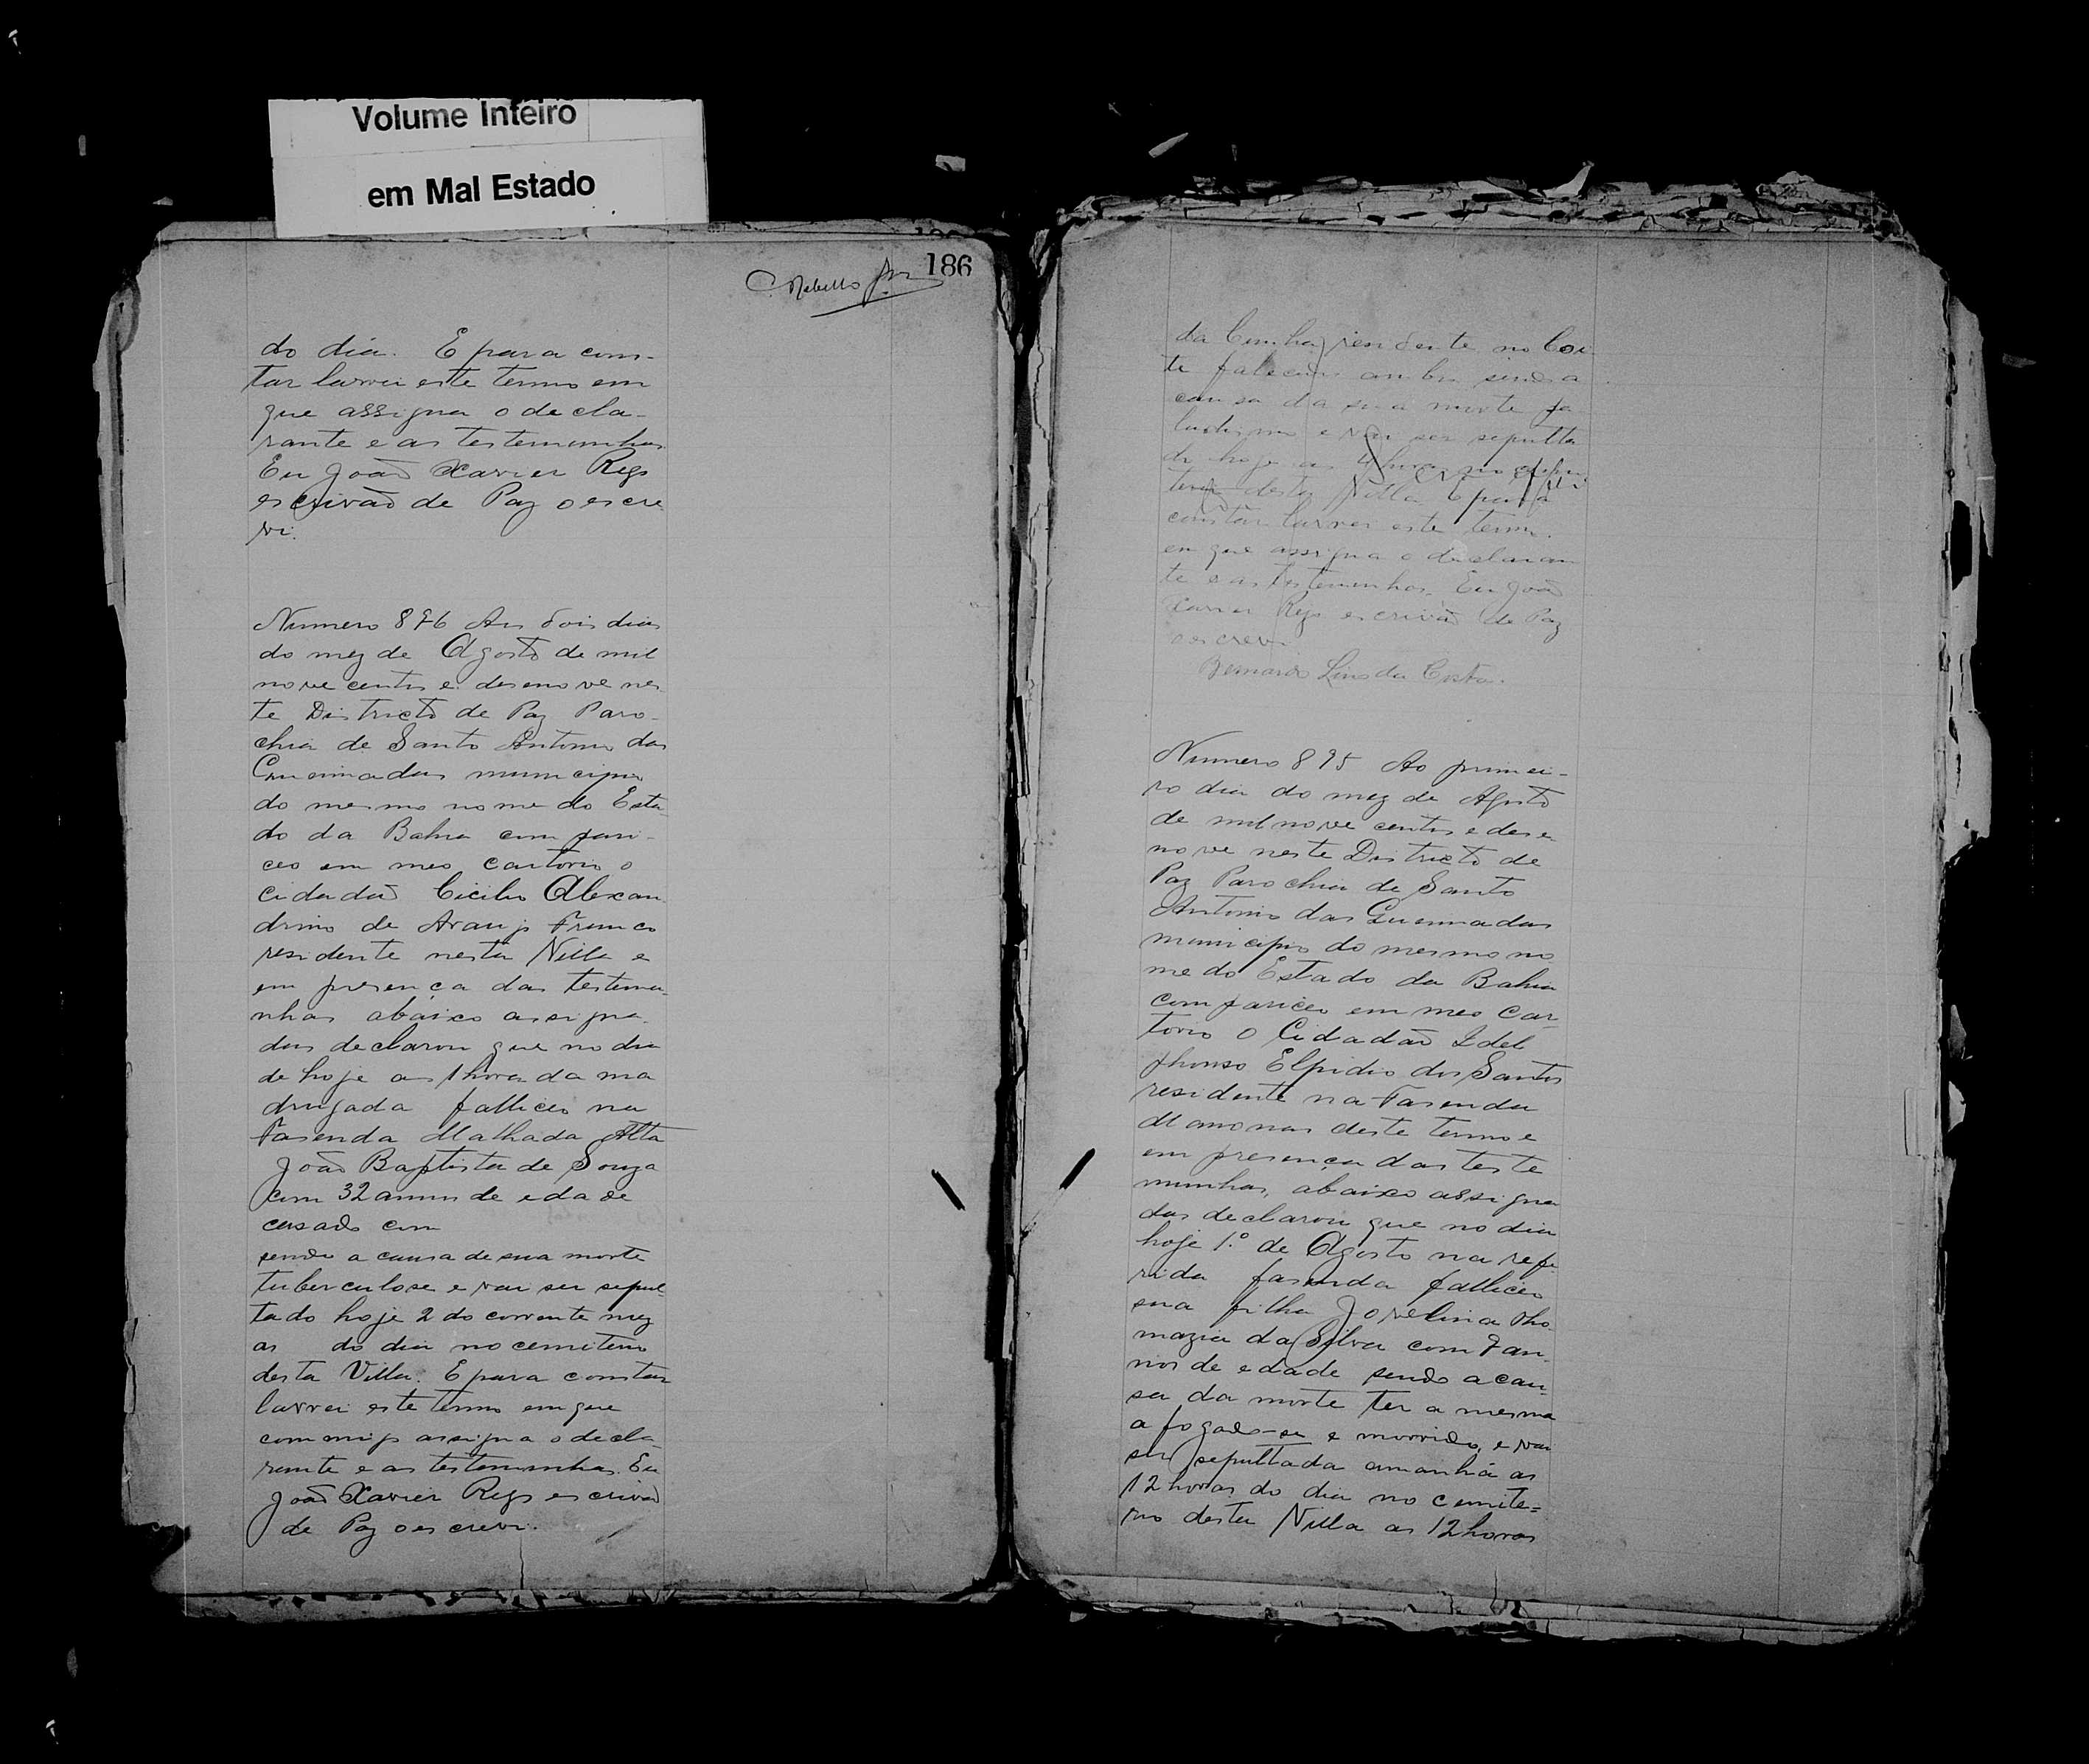 Volume Inteiro
em Mal Estado
186
C. Rebello Jor
do dia. E para cons-
tar lavrei este termo em
que assigna o decla-
rante e as testemunhas
Eu João Xavier Rego
escrivão de Paz o escre
vi.
Numero 876 Aos dois dias
do mez de Agosto de mil
nove centos e desenove nes
te Districto de Paz Paro-
chia de Santo Antonio das
Queimadas municipio
do mesmo nome do Esta
do da Bahia compari-
ceo em meo cartorio o
cidadão Cicilio Alexan
drino de Araujo Franco
residente nesta Villa e
em presença das testemu-
nhas abaixo assigna-
das declarou que no dia
de hoje as 1 hora da ma
drugada falliceo na
Fasenda Malhada Alta
João Baptista de Souza
com 32 annos de edade
casado com
sendo a causa de sua morte
tuberculose e vai ser sepul-
tado hoje 2 do corrente mez
as do dia no cemiterio
desta Villa. E para constar
lavrei este termo em que
commigo assigna o decla-
rante e as testemunhas. Eu
João Xavier Rego escrivão
de Paz o escrevi.
da Cunha residente no Coi
te falecidos ambos sendo a
causa da sua morte pa
ludismo e vai ser sepulta
do hoje as 4 horas no
desta Villa E para
constar lavrei este termo
em que assigna o declaran
te e as testemunhas. Eu João
Xavier Rego escrivão de Paz
o escrevi
Bernardo Lino da Costa.
Numero 875 Ao primei-
ro dia do mez de Agosto
de mil nove centos e dese
nove neste Districto de
Paz Parochia de Santo
Antonio das Queimadas
municipio do mesmo no
me do Estado da Bahia
compariceo em meo Car-
torio o Cidadão Idel
fhonso Elpidio dos Santos
residente na Fasenda
Mamonas deste termo e
em presença das teste
munhas, abaixo assigna
das declarou que no dia
hoje 1.º de Agosto na refe
rida fasenda falliceo
sua filha Jovelina Tho
mazia da Silva com 7 an-
nos de edade sendo a cau-
sa da morte ter a mesma
afogado-se e morrido, e vai
ser sepultada amanhã as
12 horas do dia no cemite=
rio desta Villa as 12 horas